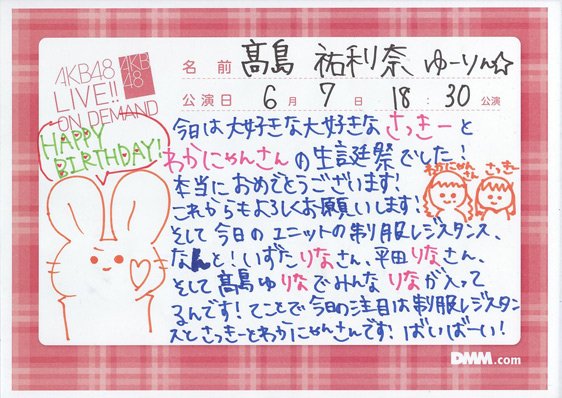 AKB48
LIVE!!
ON DEMAND
AKB
48
名前 髙島 祐利奈 ゆーりん☆
公演日 6月 7日 18:30 公演
HAPPY
BIRTHDAY!
今日は大好きな大好きなさっきーと
わかにゃんさんの生誕祭でした!
本当におめでとうございます!
わかにゃんさん
さっきー
これからもよろしくお願いします!
そして今日のユニットの制服レジスタンス、
なんと!いずたりなさん、平田りなさん、
そして髙島ゆりなでみんなりなが入って
るんです!てことで今日の注目は制服レジスタン
スとさっきーとわかにゃんさんです!ばいばーい!
DMM.com